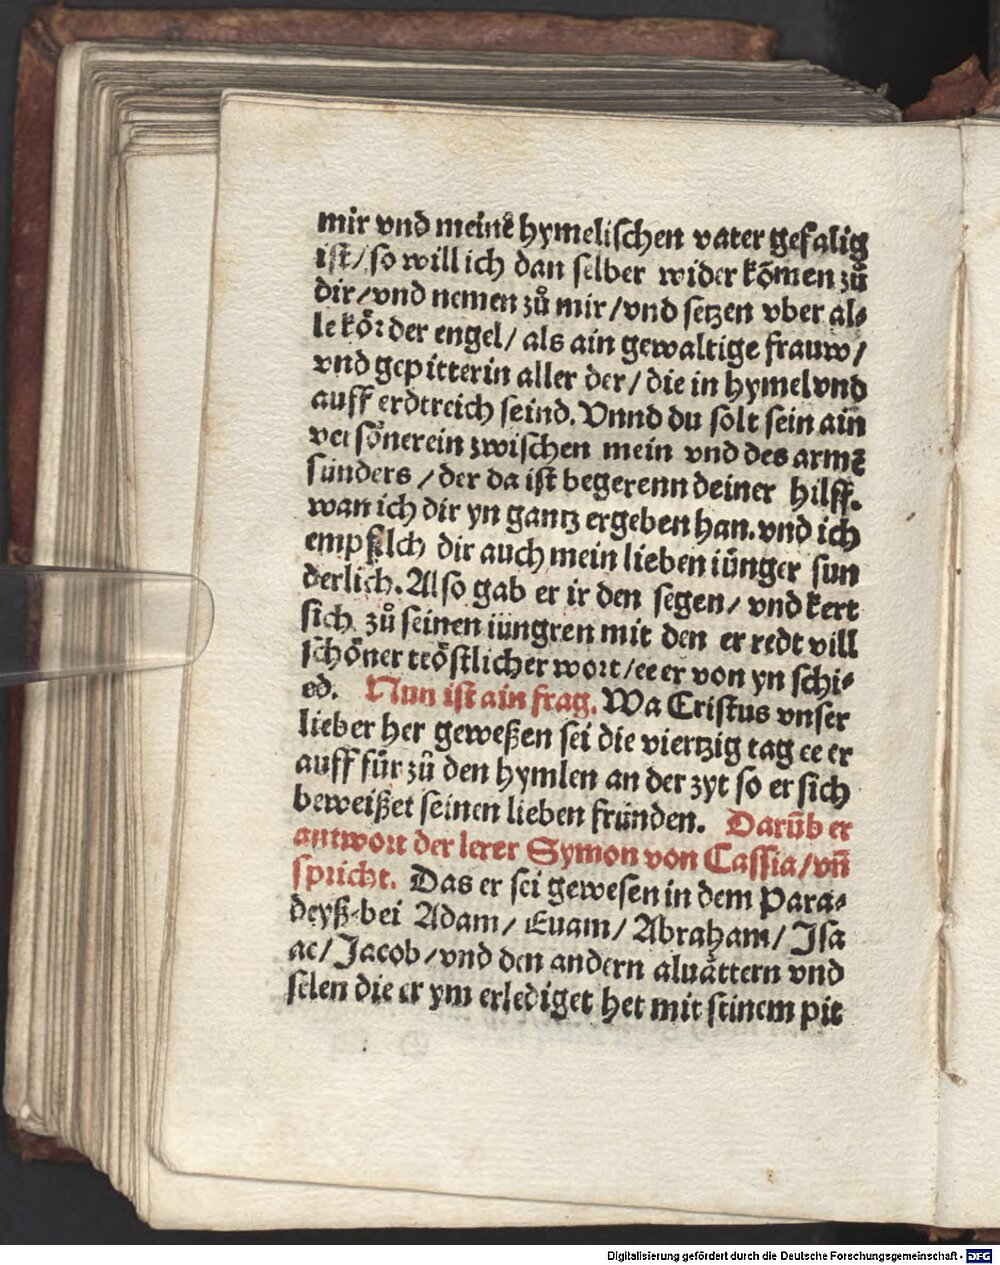 mir vnd meinē hymelischen vater gefalig
ist/ so will ich dan selber wider kōmen zů
dir/ vnd nemen zů mir/ vnd setzen vber al⸗
le kör der engel/ als ain gewaltige frauw/
vnd gepitterin aller der/ die in hymel vnd
auff erdtreich seind. Vnnd du solt sein ain
versönerein zwischen mein vnd des armē
sünders / der da ist begerenn deiner hilff.
wan ich dir yn gantz ergeben han. vnd ich
empfilch dir auch mein lieben iünger sun
derlich. Also gab er ir den segen/ vnd kert
sich zů seinen iüngren mit den er redt vill
schöner tröstlicher wort/ ee er von yn schi⸗
ed. Nun ist ain frag. Wa Cristus vnser
lieber her geweßen sei die viertzig tag ee er
auff für zů den hymlen an der zyt so er sich
beweißet seinen lieben fründen. Darūb er
antwort der lerer Symon von Cassia/ vñ
spricht. Das er sei gewesen in dem Para⸗
deyß bei Adam/ Euam/ Abraham/ Isa
ac/ Jacob/ vnd den andern aluåttern vnd
selen die er ym erlediget het mit seinem pit
Digitalisierung gefördert durch die Deutsche Forschungsgemeinschaft - DFG